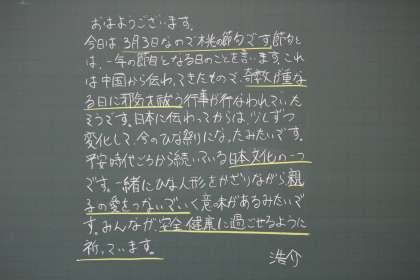 おはようございます。
今日は3月3日なので桃の節句です節句と
は、一年の節目となる日のことを言います。これ
は中国から伝わってきたもので、奇数が重な
る日に邪気を祓う行事が行なわれていた
そうです。日本に伝わってからは、少しずつ
変化して、今のひな祭りになったみたいです。
平安時代ごろから続いている日本文化の一つ
です。一緒にひな人形をかざりながら親
子の愛をつないでいく意味があるみたいで
す。みんなが、安全健康に過ごせるように
祈っています。
浩介